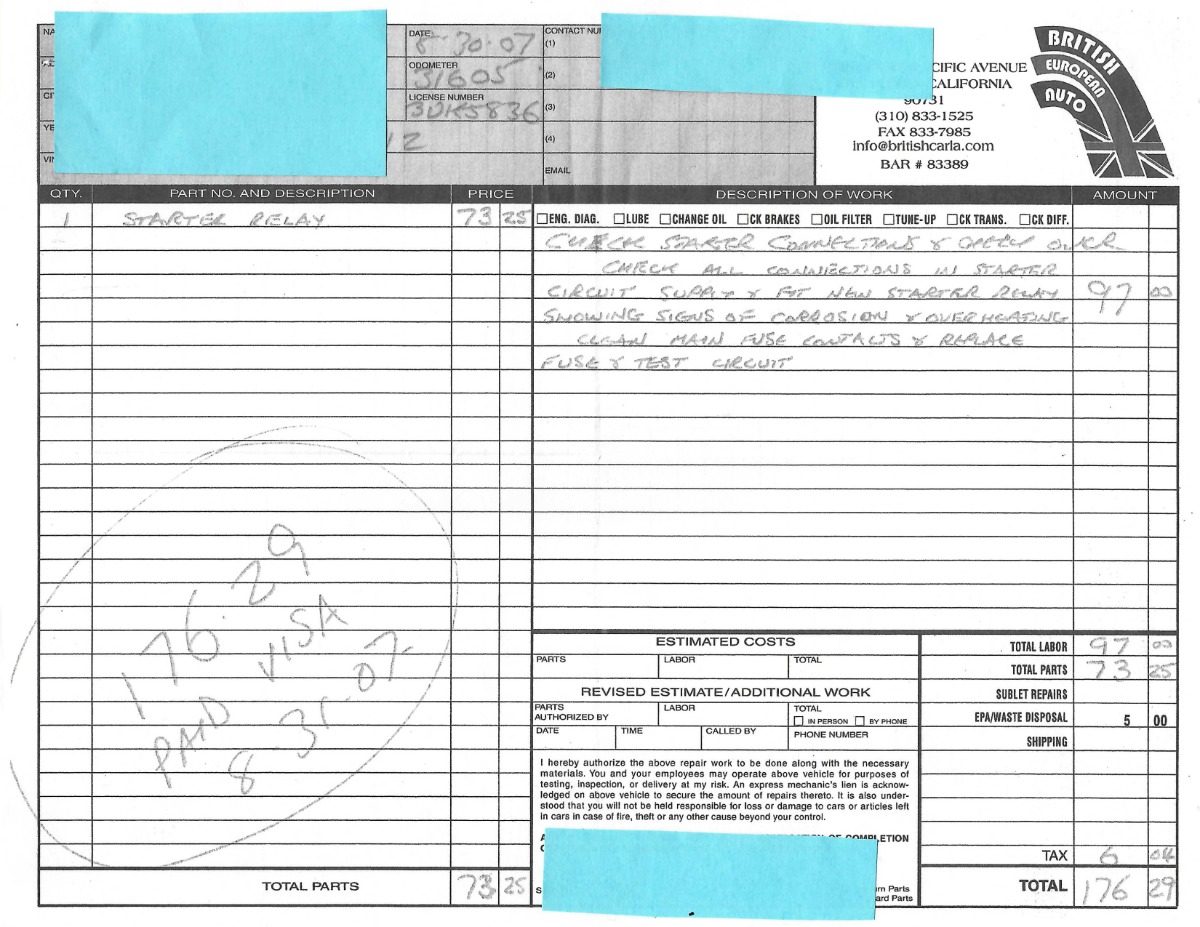 NA
DATE
8-30-07
CONTACT NU
(1)
ODOMETER
31605
(2)
CI
LICENSE NUMBER
3UKS836
(3)
YE
12
(4)
VIN
EMAIL
BRITISH
EUROPEAN
AUTO
CIFIC AVENUE
CALIFORNIA
90731
(310) 833-1525
FAX 833-7985
info@britishcarla.com
BAR # 83389
QTY. PART NO. AND DESCRIPTION PRICE DESCRIPTION OF WORK AMOUNT
1 STARTER RELAY 73 25
ENG. DIAG. LUBE CHANGE OIL CK BRAKES OIL FILTER TUNE-UP CK TRANS. CK DIFF.
CHECK STARTER CONNECTIONS & CHECK OVER
CHECK ALL CONNECTIONS IN STARTER
CIRCUIT SUPPLY & FIT NEW STARTER RELAY 97 00
SHOWING SIGNS OF CORROSION & OVERHEATING
CLEAN MAIN FUSE CONTACTS & REPLACE
FUSE & TEST CIRCUIT
176.29
PAID VISA
8-31-07
ESTIMATED COSTS
PARTS LABOR TOTAL
REVISED ESTIMATE/ADDITIONAL WORK
PARTS LABOR TOTAL
AUTHORIZED BY IN PERSON BY PHONE
DATE TIME CALLED BY PHONE NUMBER
I hereby authorize the above repair work to be done along with the necessary
materials. You and your employees may operate above vehicle for purposes of
testing, inspection, or delivery at my risk. An express mechanic's lien is acknow-
ledged on above vehicle to secure the amount of repairs thereto. It is also under-
stood that you will not be held responsible for loss or damage to cars or articles left
in cars in case of fire, theft or any other cause beyond your control.
OF COMPLETION
S
rn Parts
ard Parts
TOTAL LABOR 97 00
TOTAL PARTS 73 25
SUBLET REPAIRS
EPA/WASTE DISPOSAL 5 00
SHIPPING
TAX 6 04
TOTAL PARTS 73 25
TOTAL 176 29